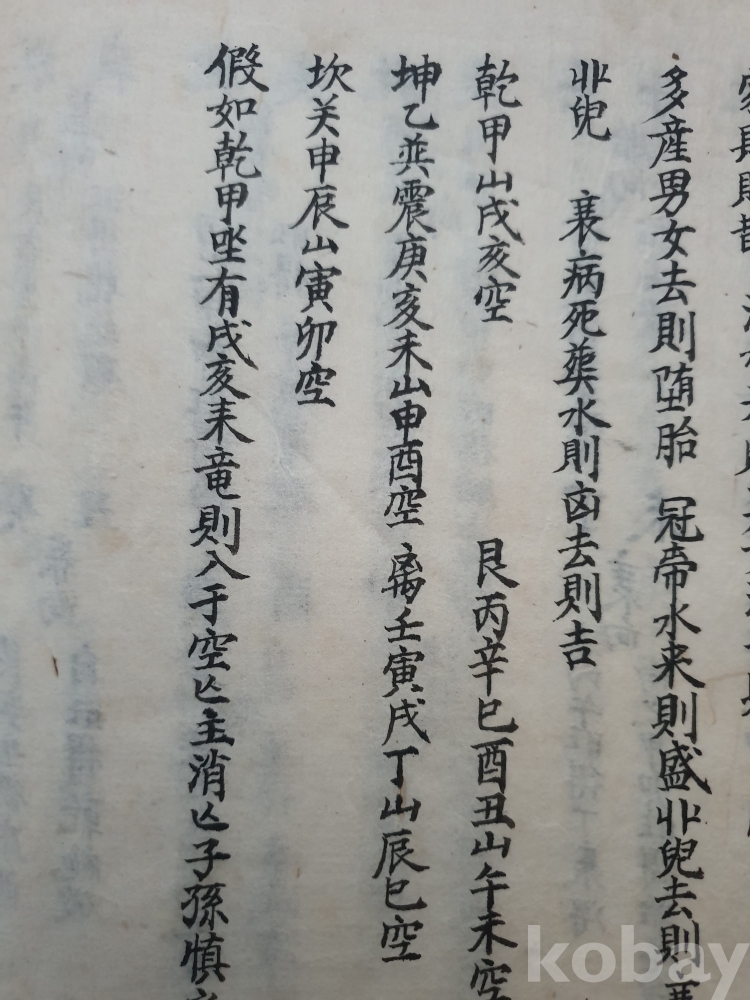 多産男女去則堕胎 冠帝水来則盛 兆兒去則
兆兒 衰病死葬水則凶去則吉
乾甲山戌亥空 艮丙辛巳酉丑山午未空
坤乙巽震庚亥未山申酉空 离壬寅戌丁山辰巳空
坎癸申辰山寅卯空
假如乾甲坐有戌亥来竜則入于空亡主消亡子孫慎
kobay